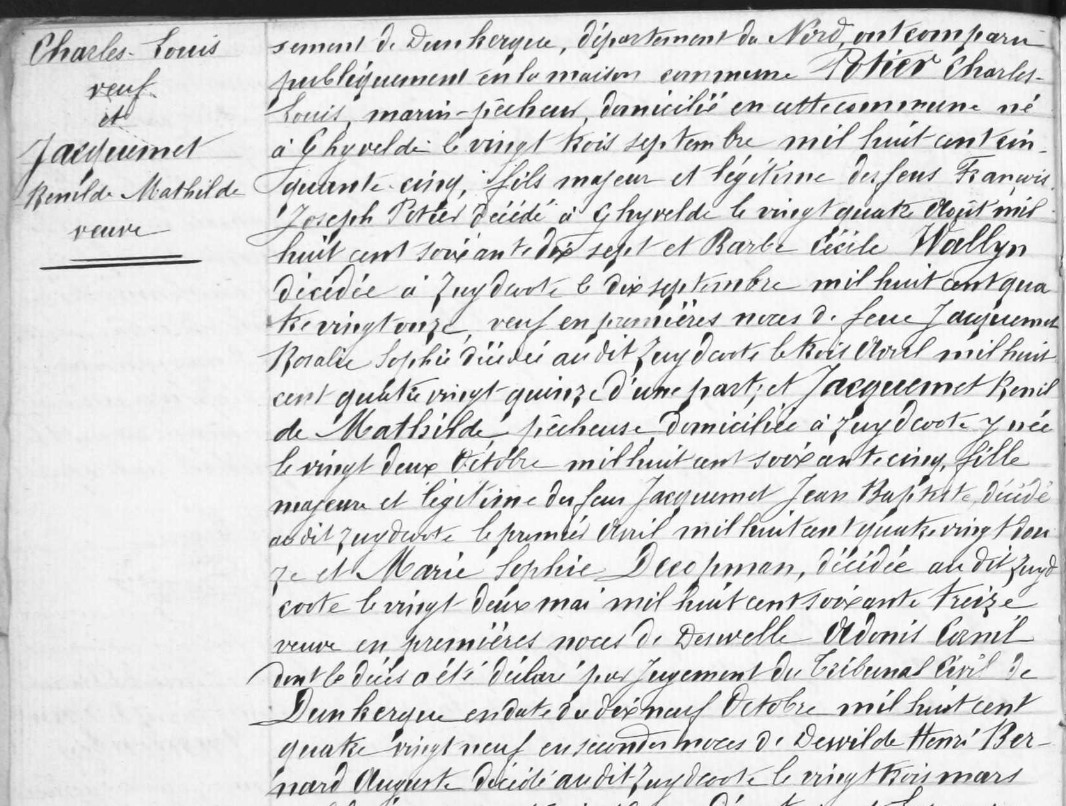 Charles-Louis
veuf
et
Jacquemet
Renilde Mathilde
veuve
sement de Dunkerque, département du Nord, ont comparu
publiquement en la maison commune Potier Charles-
Louis, marin-pêcheur, domicilié en cette commune né
à Ghyvelde le vingt trois septembre mil huit cent cin-
quante-cinq, fils majeur et légitime des feus François
Joseph Potier décédé à Ghyvelde le vingt quatre Août mil
huit cent soixante dix sept et Barbe Cécile Wallyn
décédée à Zuydcoote le dix septembre mil huit cent qua
tre vingt onze, veuf en premières noces de feue Jacquemet
Rosalie Sophie décédée audit Zuydcoote le trois Avril mil huit
cent quatre vingt quinze d'une part; et Jacquemet Renil
de Mathilde pêcheuse domiciliée à Zuydcoote y née
le vingt deux Octobre mil huit cent soixante cinq, fille
majeure et légitime des feus Jacquemet Jean Baptiste décédé
audit Zuydcoote le premier Avril mil huit cent quatre vingt dou
ze et Marie Sophie Decopman, décédée audit Zuyd
coote le vingt deux mai mil huit cent soixante treize
veuve en premières noces de Deswelle Adonis Cornil
dont le décès a été déclaré par Jugement du Tribunal Civil de
Dunkerque en date du dix neuf Octobre mil huit cent
quatre vingt neuf en secondes noces de Dewilde Henri Ber-
nard Auguste décédé audit Zuydcoote le vingt trois mars